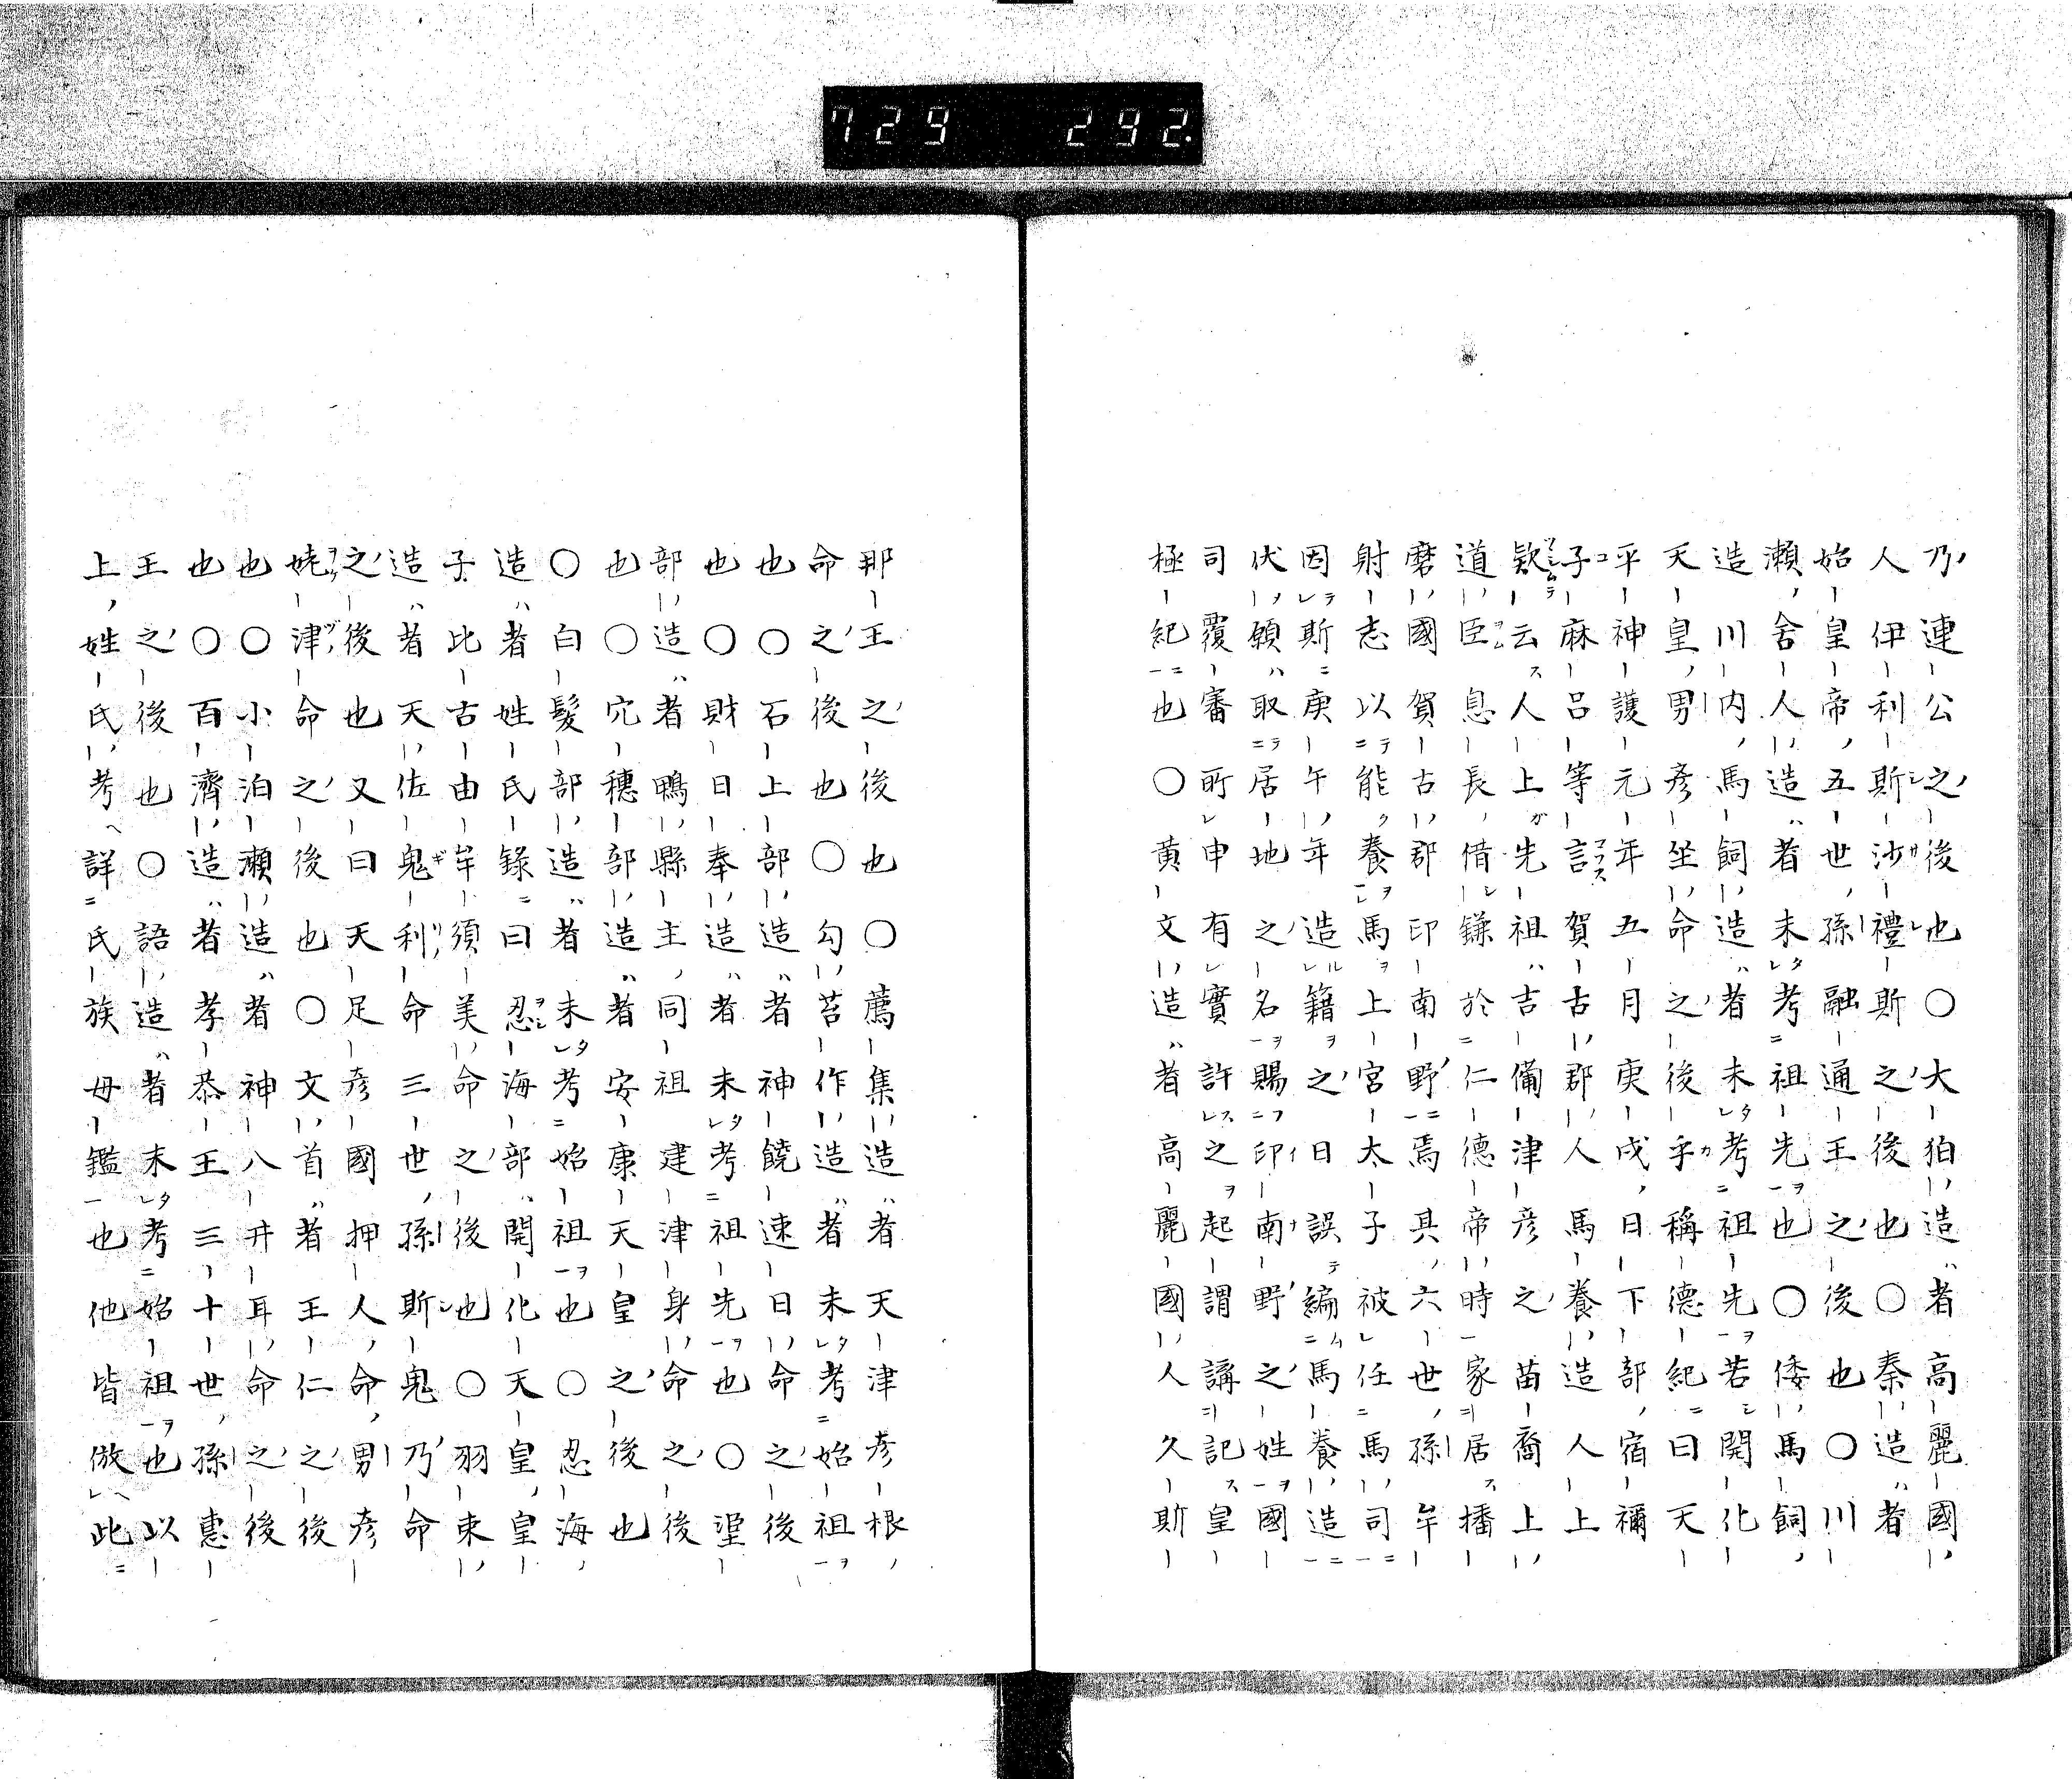 729 292.
乃連公之後也〇大狛造者高麗國
人伊利斯沙禮斯之後也〇秦造者
始皇帝五世孫融通王之後也〇川
瀬舎人造者未考祖先也〇倭馬飼
造川内馬飼造者未考祖先若開化
天皇男彦坐命之後乎稱德紀曰天
平神護元年五月庚戌日下部宿禰
子麻呂等言賀古郡人馬養造人上
款云人上先祖吉備津彦之苗裔上
道臣息長借鎌於仁德帝時家居播
磨國賀古郡印南野焉其六世孫牟
射志以能養馬上宮太子被任馬司
因斯庚午年造籍之日誤編馬養造
伏願取居地之名賜印南野之姓國
司覆審所申有實許之起謂講記皇
極紀也〇黄文造者高麗國人久斯
那王之後也〇薦集造者天津彦根
命之後也〇勾筥作造者未考始祖
也〇石上部造者神饒速日命之後
也〇財日奉造者未考祖先也〇望
部造者鴨縣主同祖建津身命之後
也〇穴穗部造者安康天皇之後也
〇白髮部造者未考始祖也〇忍海
造者姓氏錄曰忍海部開化天皇皇
子比古由牟須美命之後也〇羽束
造者天佐鬼利命三世孫斯鬼乃命
之後也又曰天足彦國押人命男彦
姥津命之後也〇文首者王仁之後
也〇小泊瀬造者神八井耳命之後
也〇百濟造者孝恭王三十世孫惠
王之後也〇語造者未考始祖也以
上姓氏考詳氏族母鑑也他皆倣此